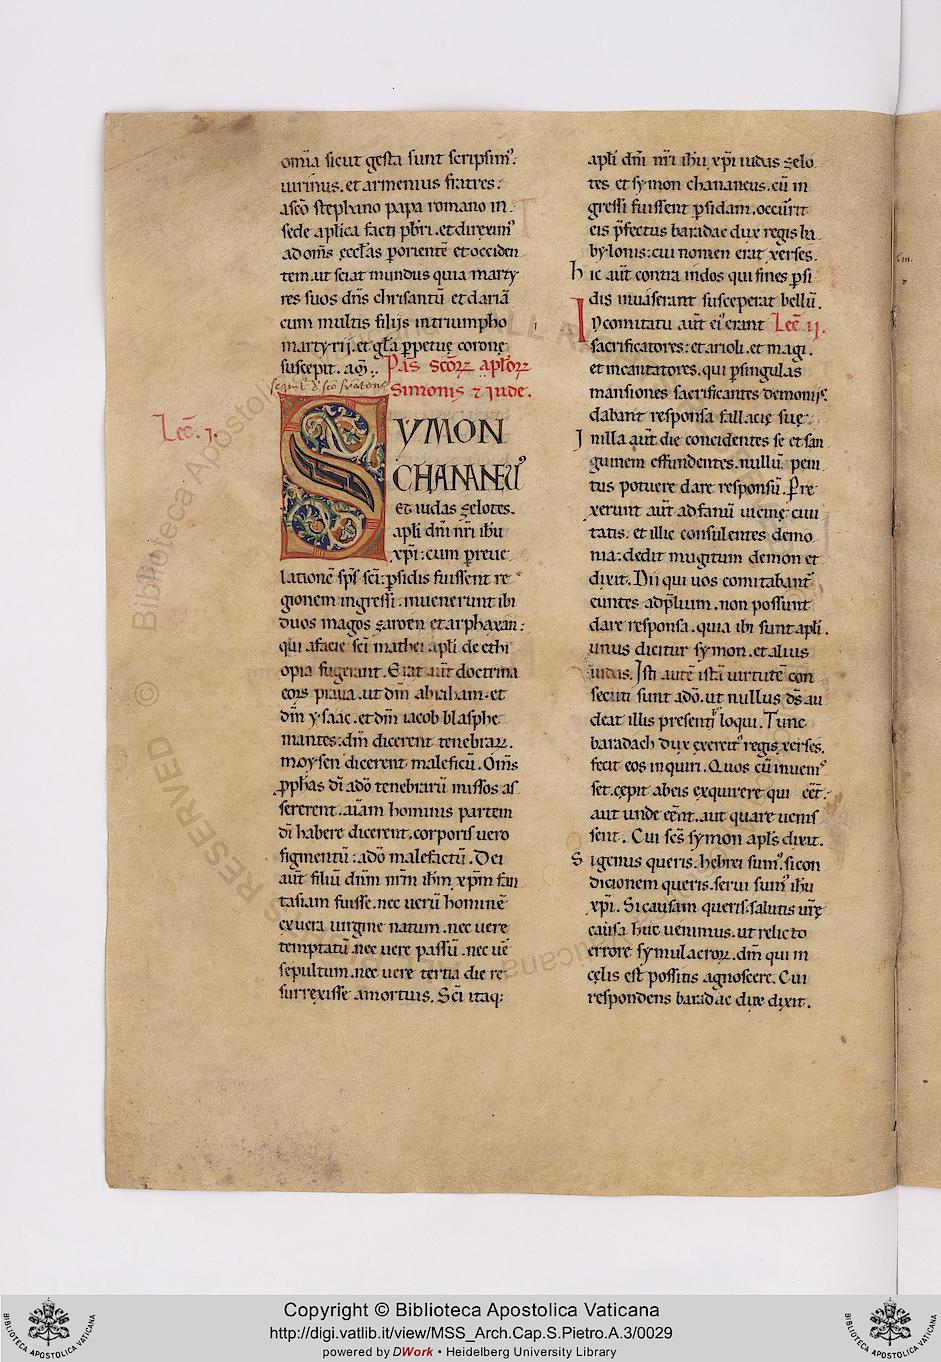 omīa sicut gesta sunt scripsim᷒.
uirinus. et armenius fratres.
a sc̄o stephano papa romano in
sede aplica facti pb̄ri. et direxim᷒
ad om̄s ecclās p oriente᷒ et occiden
tem. ut sciat mundus quia marty
res suos dn̄s chrisantū et dariā
cum multis filijs in triumpho
martyrij. et gl̄a ppetuę coronę
suscepit. am̄.. Pas̄ sc̄oꝝ apl̄oꝝ
Simonis ⁊ Jude.
Lec̄. j.
SYMON
CHANANEU᷒
et iudas zelotes.
apl̄i dn̄i nr̄i ihū
xp̄i: cum p reue
lationē sp̄s sc̄i: psidis fuissent re
gionem ingressi. inuenerunt ibi
duos magos zaroen et arphaxan:
qui a facie sc̄i mathei apl̄i de ethi
opia fugerant. Erat aūt doctrina
eoꝝ praua. ut dm̄ abraham. et
dm̄ ysaac. et dm̄ iacob blasphe
mantes: dm̄ dicerent tenebraꝝ.
moysen dicerent maleficū. Om̄s
pphas dī a dō tenebrarū missos as
sererent. aīam hominis partem
dī habere dicerent. corporis uero
figmentū: a dō malefactū. Dei
aūt filiū dn̄m nr̄m ih̄m xp̄m fan
tasiam fuisse. nec uerū hominē
ex uera uirgine natum. nec uere
temptatū. nec uere passū. nec ue᷒
sepultum. nec uere tertia die re
surrexisse a mortuis. Sc̄i itaq;
apl̄i dn̄i nr̄i ihū xp̄i iudas zelo
tes et symon chananeus. cū in
gressi fuissent psidam. occūrit
eis pfectus baradac dux regis ba
bylonis: cui nomen erat xerses.
hic aūt contra indos qui fines psi
dis inuaserant susceperat bellū.
In comitatu aūt ei᷒ erant Lec̄ ij.
sacrificatores: et arioli. et magi.
et incantatores. qui p singulas
mansiones sacrificantes demonijs
dabant responsa fallacię suę.
In illa aūt die concidentes se et san
guinem effundentes. nullū peni
tus potuere dare responsū. Pre
xerunt aūt ad fanū uicinę ciui
tatis. et illic consulentes demo
nia: dedit mugitum demon et
dixit. Dii qui uos comitabant᷒
euntes ad p̄lium. non possunt
dare responsa. quia ibi sunt apl̄i.
unus dicitur symon. et alius
iudas. Isti autē istā uirtutē con
secuti sunt a dō. ut nullus d̄s au
deat illis presentib loqui. Tunc
baradach dux exercit᷒ regis xerses.
fecit eos inquiri. Quos cū inuenis
set. cępit ab eis exquirere qui eēt.
aut unde eēnt. aut quare uenis
sent. Cui sc̄s symon apl̄s dixit.
Si genus queris: hebrei sum᷒. si con
dicionem queris. serui sum᷒ ihū
xp̄i. Si causam queris. salutis ur̄ę
causa huc uenimus. ut relicto
errore symulacroꝝ. dm̄ qui in
cęlis est possitis agnoscere. Cui
respondens baradac dux dixit.
Copyright © Biblioteca Apostolica Vaticana
http://digi.vatlib.it/view/MSS_Arch.Cap.S.Pietro.A.3/0029
powered by DWork • Heidelberg University Library
BIBLIOTECA APOSTOLICA VATICANA
BIBLIOTECA APOSTOLICA VATICANA